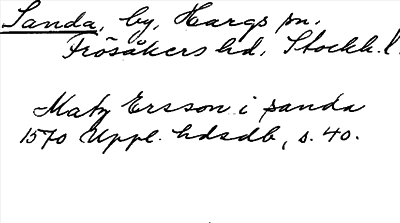 Sanda, by, Hargs sn.
Frösåkers hd, Stockh. l.
Matz Ersson i sanda
1570 Uppl. hdsdb, s. 40.